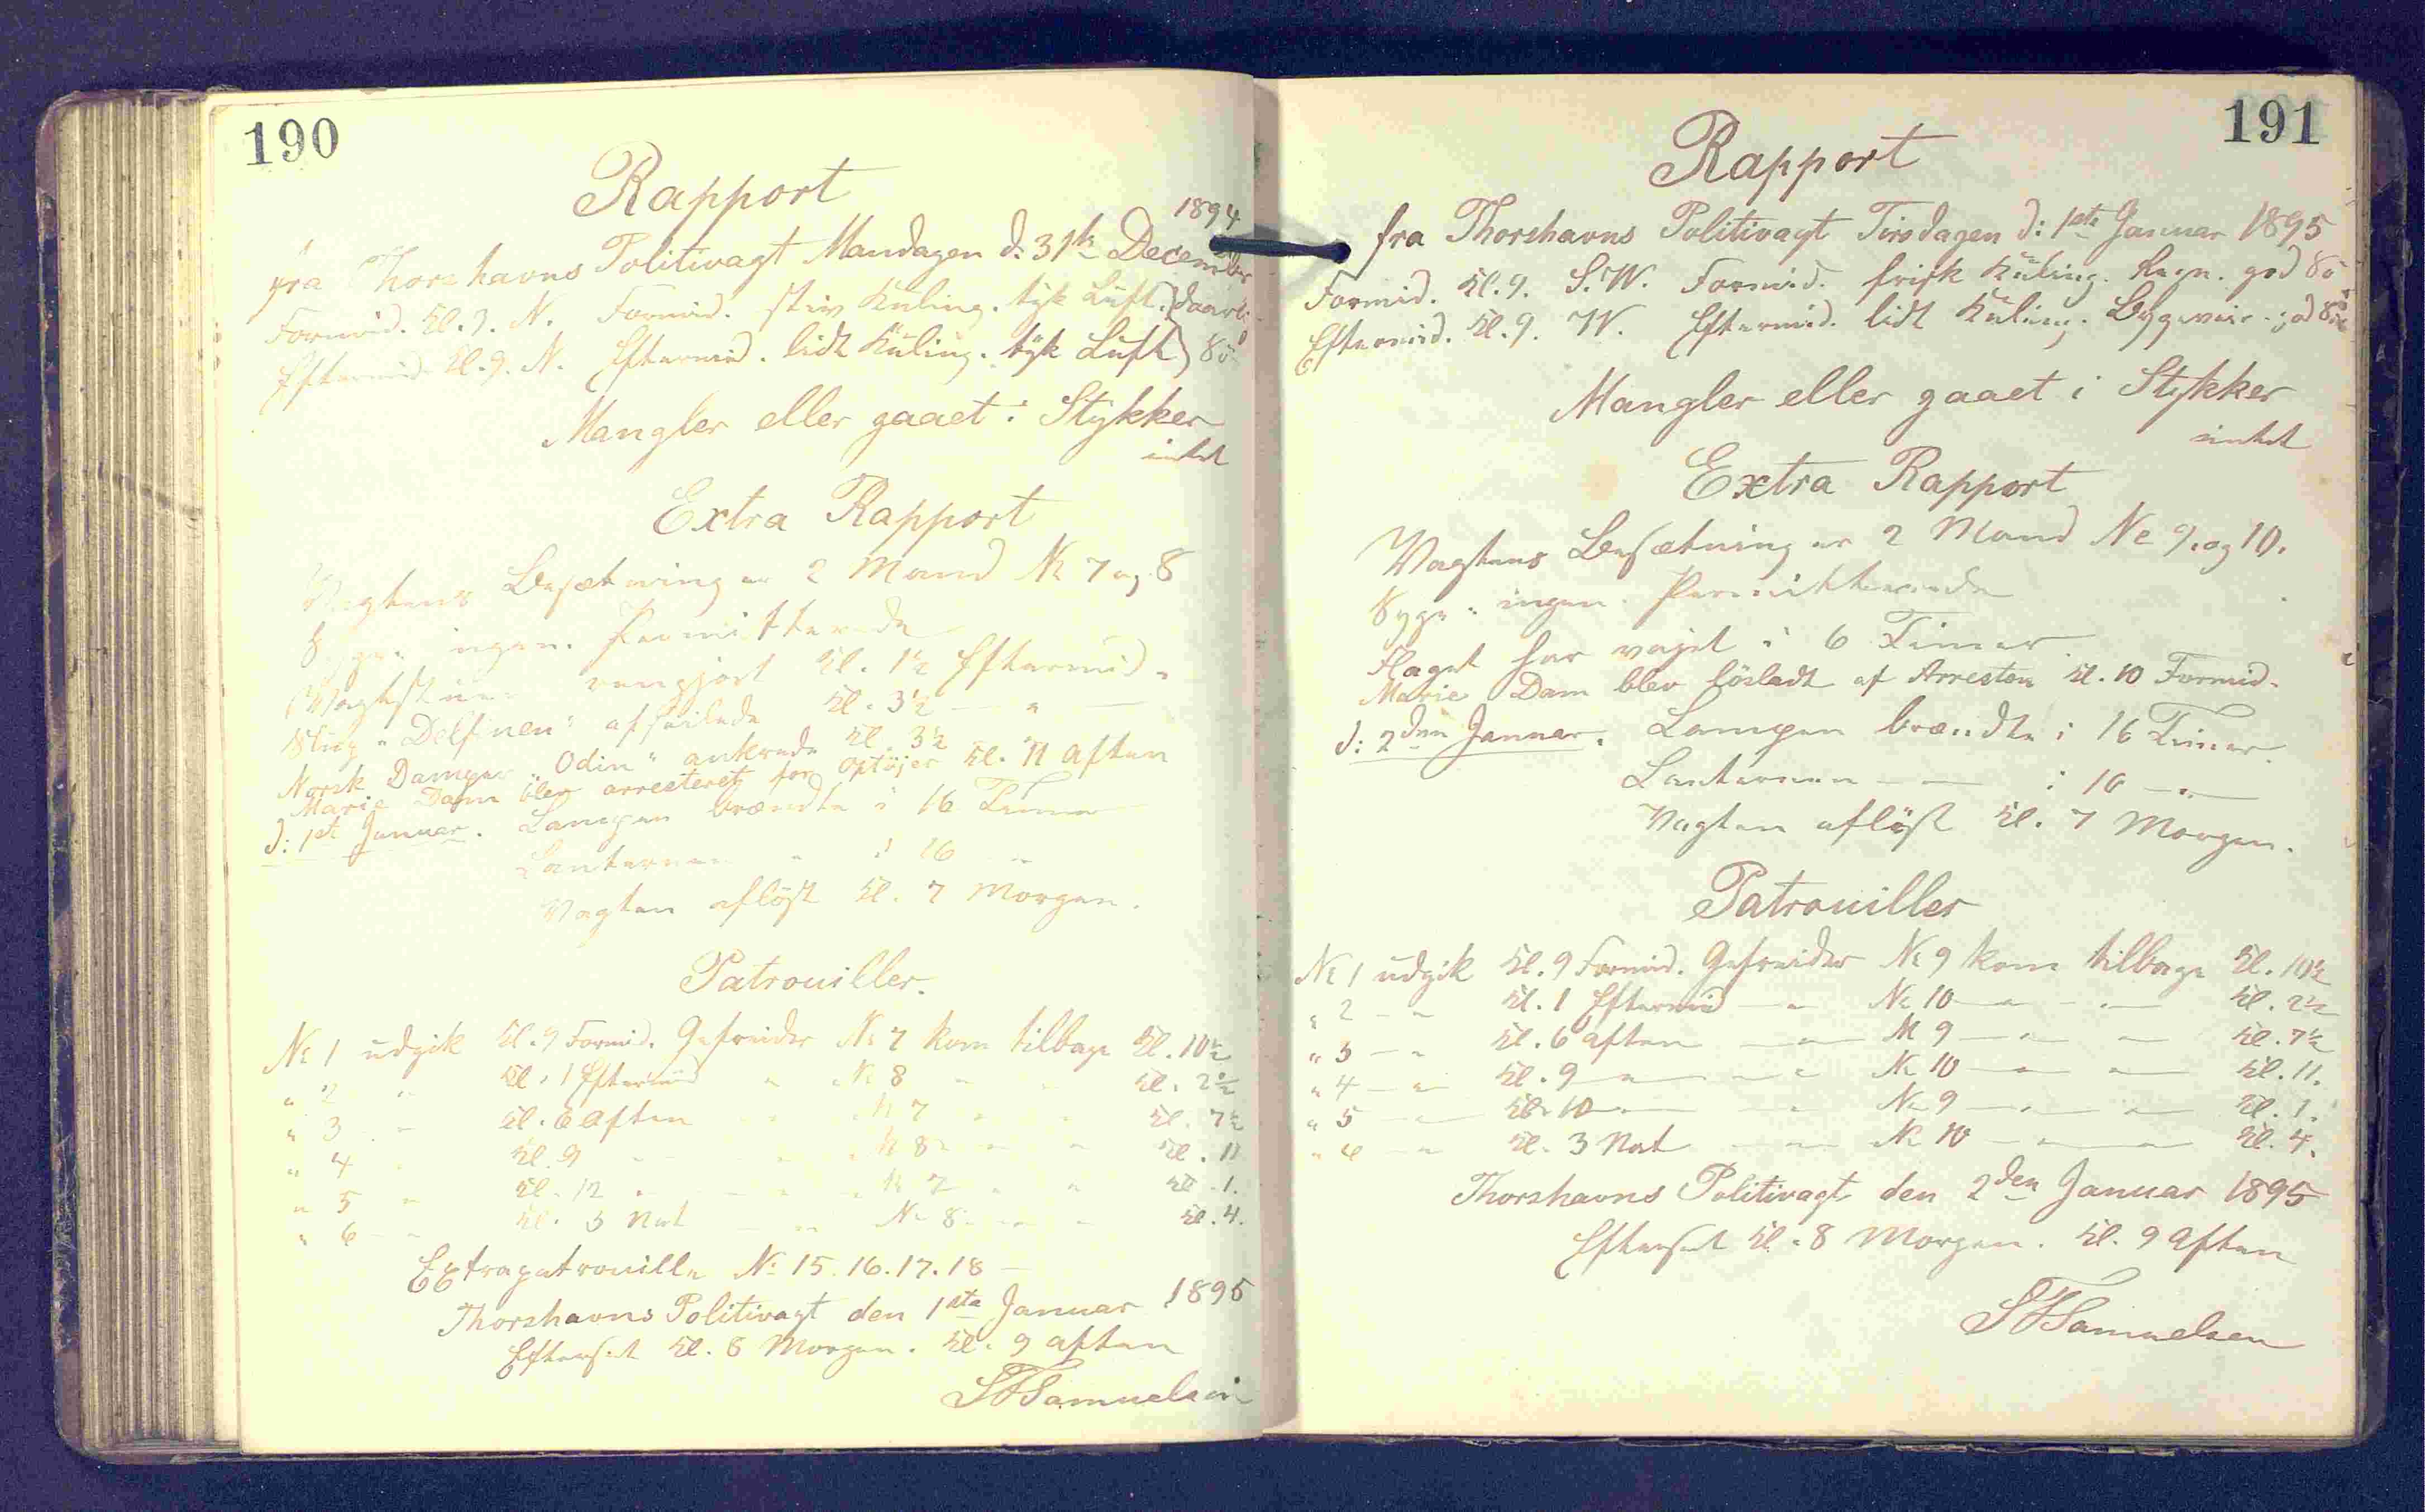 190
Rapport
1894
fra Thorshavns Politivagt Mandagen d: 31te December
Formid. Kl. 9. N. Formid. stiv Kuling. tyk Luft. } daarlig
Eftermid. Kl. 9. N. Eftermid. lidt Kuling. tyk Luft } Sö
Mangler eller gaaet i Stykker
intet
Extra Rapport
Vagtens Besætning er 2 Mand No 7 og 8
Syge: ingen. Permitterede
Vagtstuen rengjort Kl. 1½ Eftermid.
Slup "Delfinen" afseilede Kl. 3½ — " —
Norsk Damper "Odin" ankrede Kl. 3½ "
Marie Dam blev arresteret for Optöjer Kl. 11 Aften
d: 1ste Januar. Lampen brændte i 16 Timer
Lanternen " i 16 "
Vagten aflöst Kl. 7 Morgen.
Patrouiller.
No 1 udgik Kl. 9 Formid. Gefreider No 7 kom tilbage Kl. 10½
" 2 " Kl. 1 Eftermid " No 8 " " Kl. 2½
" 3 " Kl. 6 Aften " No 7 " " Kl. 7½
" 4 " Kl. 9 " " No 8 " " Kl. 11
" 5 " Kl. 12 " " No 7 " " Kl. 1.
" 6 " Kl. 3 Nat " No 8 " " Kl. 4.
Extrapatrouille No 15. 16. 17. 18 —
Thorshavns Politivagt den 1ste Januar 1895
Efterset Kl. 8 Morgen. Kl. 9 Aften
Samuelsen
191
Rapport
fra Thorshavns Politivagt Tirsdagen d: 1ste Januar 1895
Formid. Kl. 9. S.W. Formid. frisk Kuling. Regn. god Sö
Eftermid. Kl. 9. W. Eftermid. lidt Kuling. Bygeveir. god Sö
Mangler eller gaaet i Stykker
intet
Extra Rapport
Vagtens Besætning er 2 Mand No 9. og 10.
Syge: ingen. Permitterede
Flaget har vajet i 6 Timer.
Marie Dam blev lösladt af Arresten Kl. 10 Formid.
d: 2den Januar. Lampen brændte i 16 Timer.
Lanternen — — i 16 — " —
Vagten aflöst Kl. 7 Morgen.
Patrouiller
No 1 udgik Kl. 9 Formid. Gefreider No 9 kom tilbage Kl. 10½
" 2 — " Kl. 1 Eftermid — " No 10 — " — " — Kl. 2½
" 3 — " Kl. 6 Aften — " — No 9 — " — " — Kl. 7½
" 4 — " Kl. 9 — " — " — No 10 — " — " — Kl. 11.
" 5 — " — Kl. 10 — " — " — No 9 — " — " — Kl. 1.
" 6 — " Kl. 3 Nat — " — No 10 — " — " — Kl. 4.
Thorshavns Politivagt den 2den Januar 1895
Efterset Kl. 8 Morgen. Kl. 9 Aften
Samuelsen